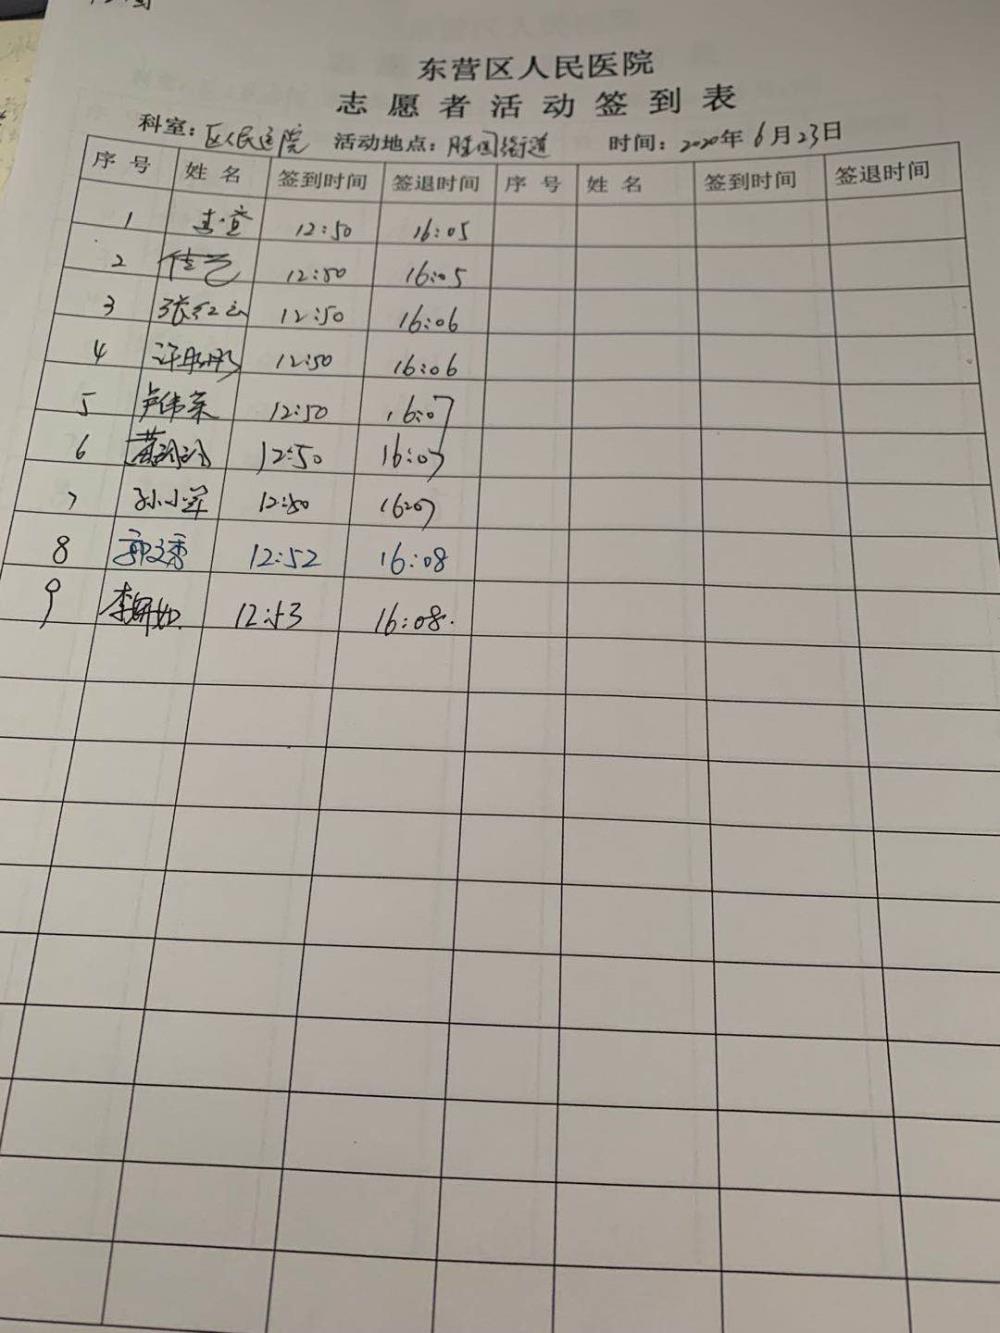 东营区人民医院
志愿者活动签到表
科室：区人民医院 活动地点：胜园街道 时间：2020年6月23日
序号 姓名 签到时间 签退时间 序号 姓名 签到时间 签退时间
1 12:50 16:05
2 12:50 16:05
3 张红云 12:50 16:06
4 许彤彤 12:50 16:06
5 卢伟荣 12:50 16:07
6 12:50 16:07
7 孙小军 12:50 16:07
8 郭文秀 12:52 16:08
9 李妍如 12:53 16:08.